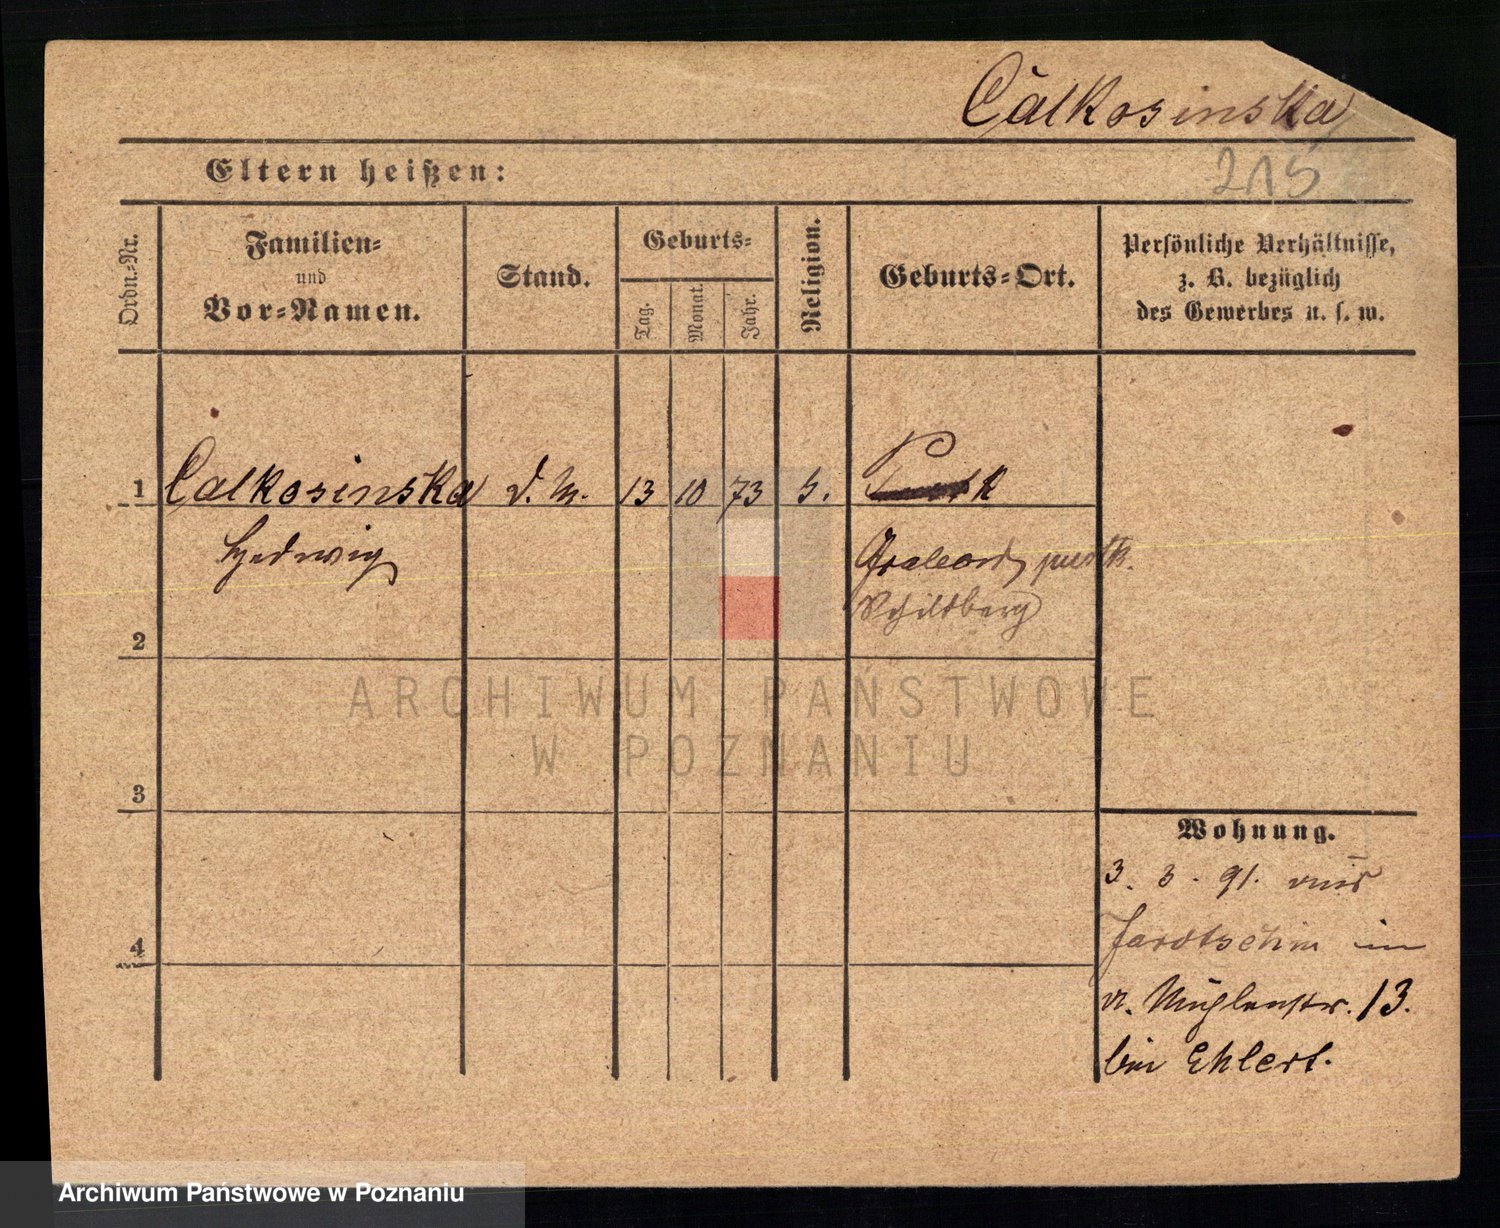 Calkosinska
215
Eltern heißen:
Ordn.-Nr.
Familien-
und
Vor-Namen.
Stand.
Geburts-
Tag.
Monat.
Jahr.
Religion.
Geburts-Ort.
Persönliche Verhältnisse,
z. B. bezüglich
des Gewerbes u. s. w.
1 Calkosinska d. M. 13 10 73
Hedwig
Schildberg
2
ARCHIWUM PAŃSTWOWE
W POZNANIU
3
Wohnung.
3. 3. 91. aus
Jarotschin in
4
Mühlenstr. 13.
bei Ehlert.
Archiwum Państwowe w Poznaniu